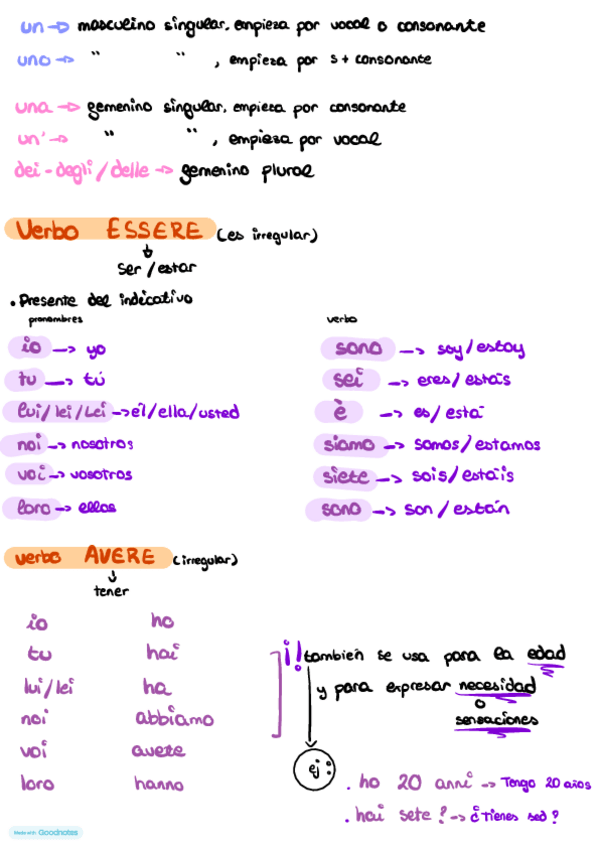 un → masculino singular, empieza por vocal o consonante
uno → " " , empieza por s + consonante
una → gemenino singular, empieza por consonante
un' → " " , empieza por vocal
dei - degli / delle → gemenino plural
Verbo ESSERE (es irregular)
ser / estar
• Presente del indicativo
pronombres verbo
io → yo sono → soy / estoy
tu → tú sei → eres / estás
lui / lei / Lei → él / ella / usted è → es / está
noi → nosotros siamo → somos / estamos
voi → vosotros siete → sois / estáis
loro → ellos sono → son / están
verbo AVERE (irregular)
tener
io ho
tu hai
lui / lei ha
noi abbiamo
voi avete
loro hanno
¡! también se usa para la edad
y para expresar necesidad
o
sensaciones
ej:
. ho 20 anni → Tengo 20 años
. hai sete? → ¿Tienes sed?
Made with Goodnotes